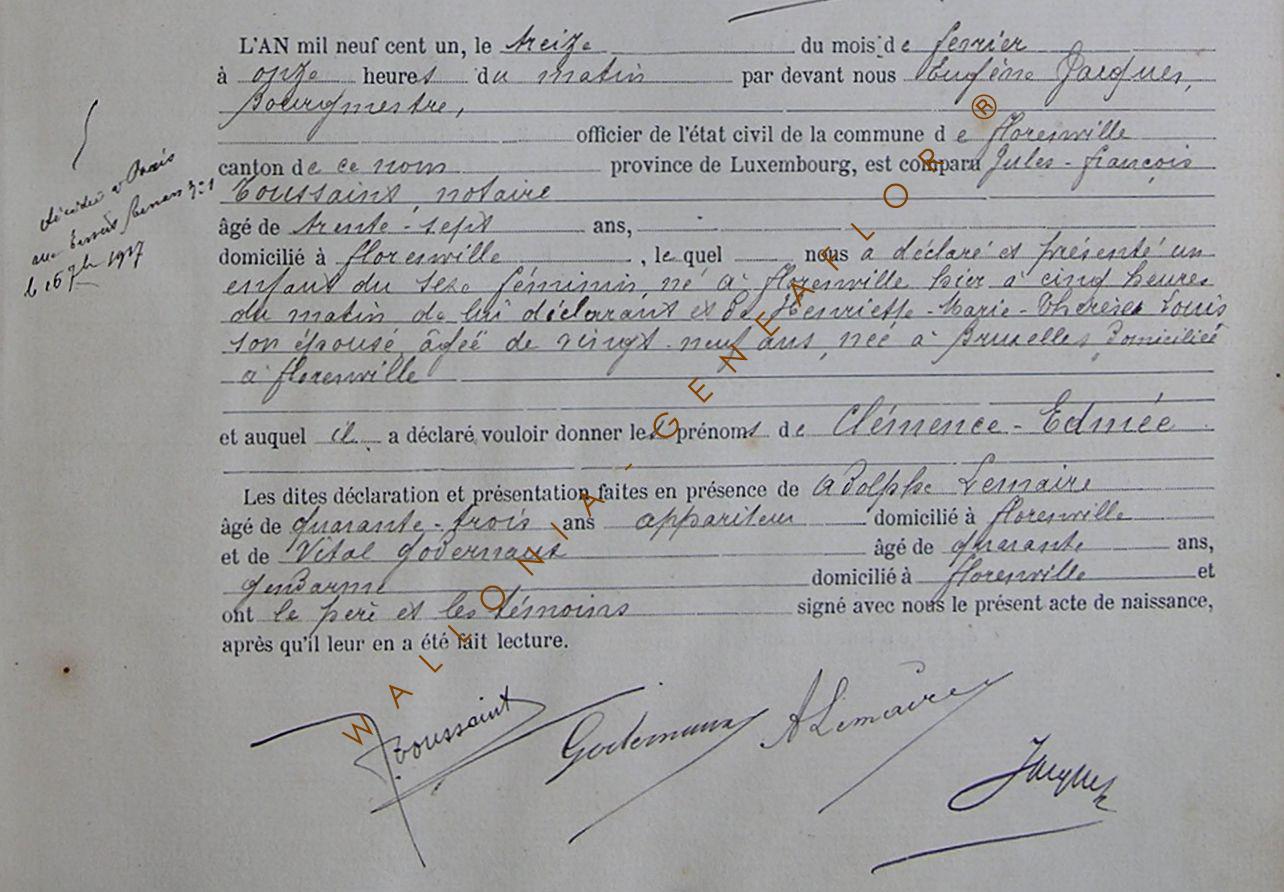 L'AN mil neuf cent un, le treize du mois de fevrier
à onze heures du matin par devant nous Eugène Jacques,
Bourgmestre,
officier de l'état civil de la commune de florenville
canton de ce nom province de Luxembourg, est comparu Jules-françois
Toussaint, notaire
âgé de trente-sept ans,
domicilié à florenville, le quel nous a déclaré et présenté un
enfant du sexe féminin né à florenville hier à cinq heures
du matin de lui déclarant et de Henriette-Marie-Thérèse Louis
son épouse âgée de vingt-neuf ans, née à Bruxelles domiciliée
à florenville
et auquel il a déclaré vouloir donner les prénoms de Clémence-Edmée
Les dites déclaration et présentation faites en présence de Adolphe Lemaire
âgé de quarante-trois ans appariteur domicilié à florenville
et de Vital Godernaux âgé de quarante ans,
gendarme domicilié à florenville et
ont le père et les témoins signé avec nous le présent acte de naissance,
après qu'il leur en a été fait lecture.
décédée à
le 16 7bre
Toussaint
A Lemaire
Jacques
WALLONIA - GENEAFLOR ®